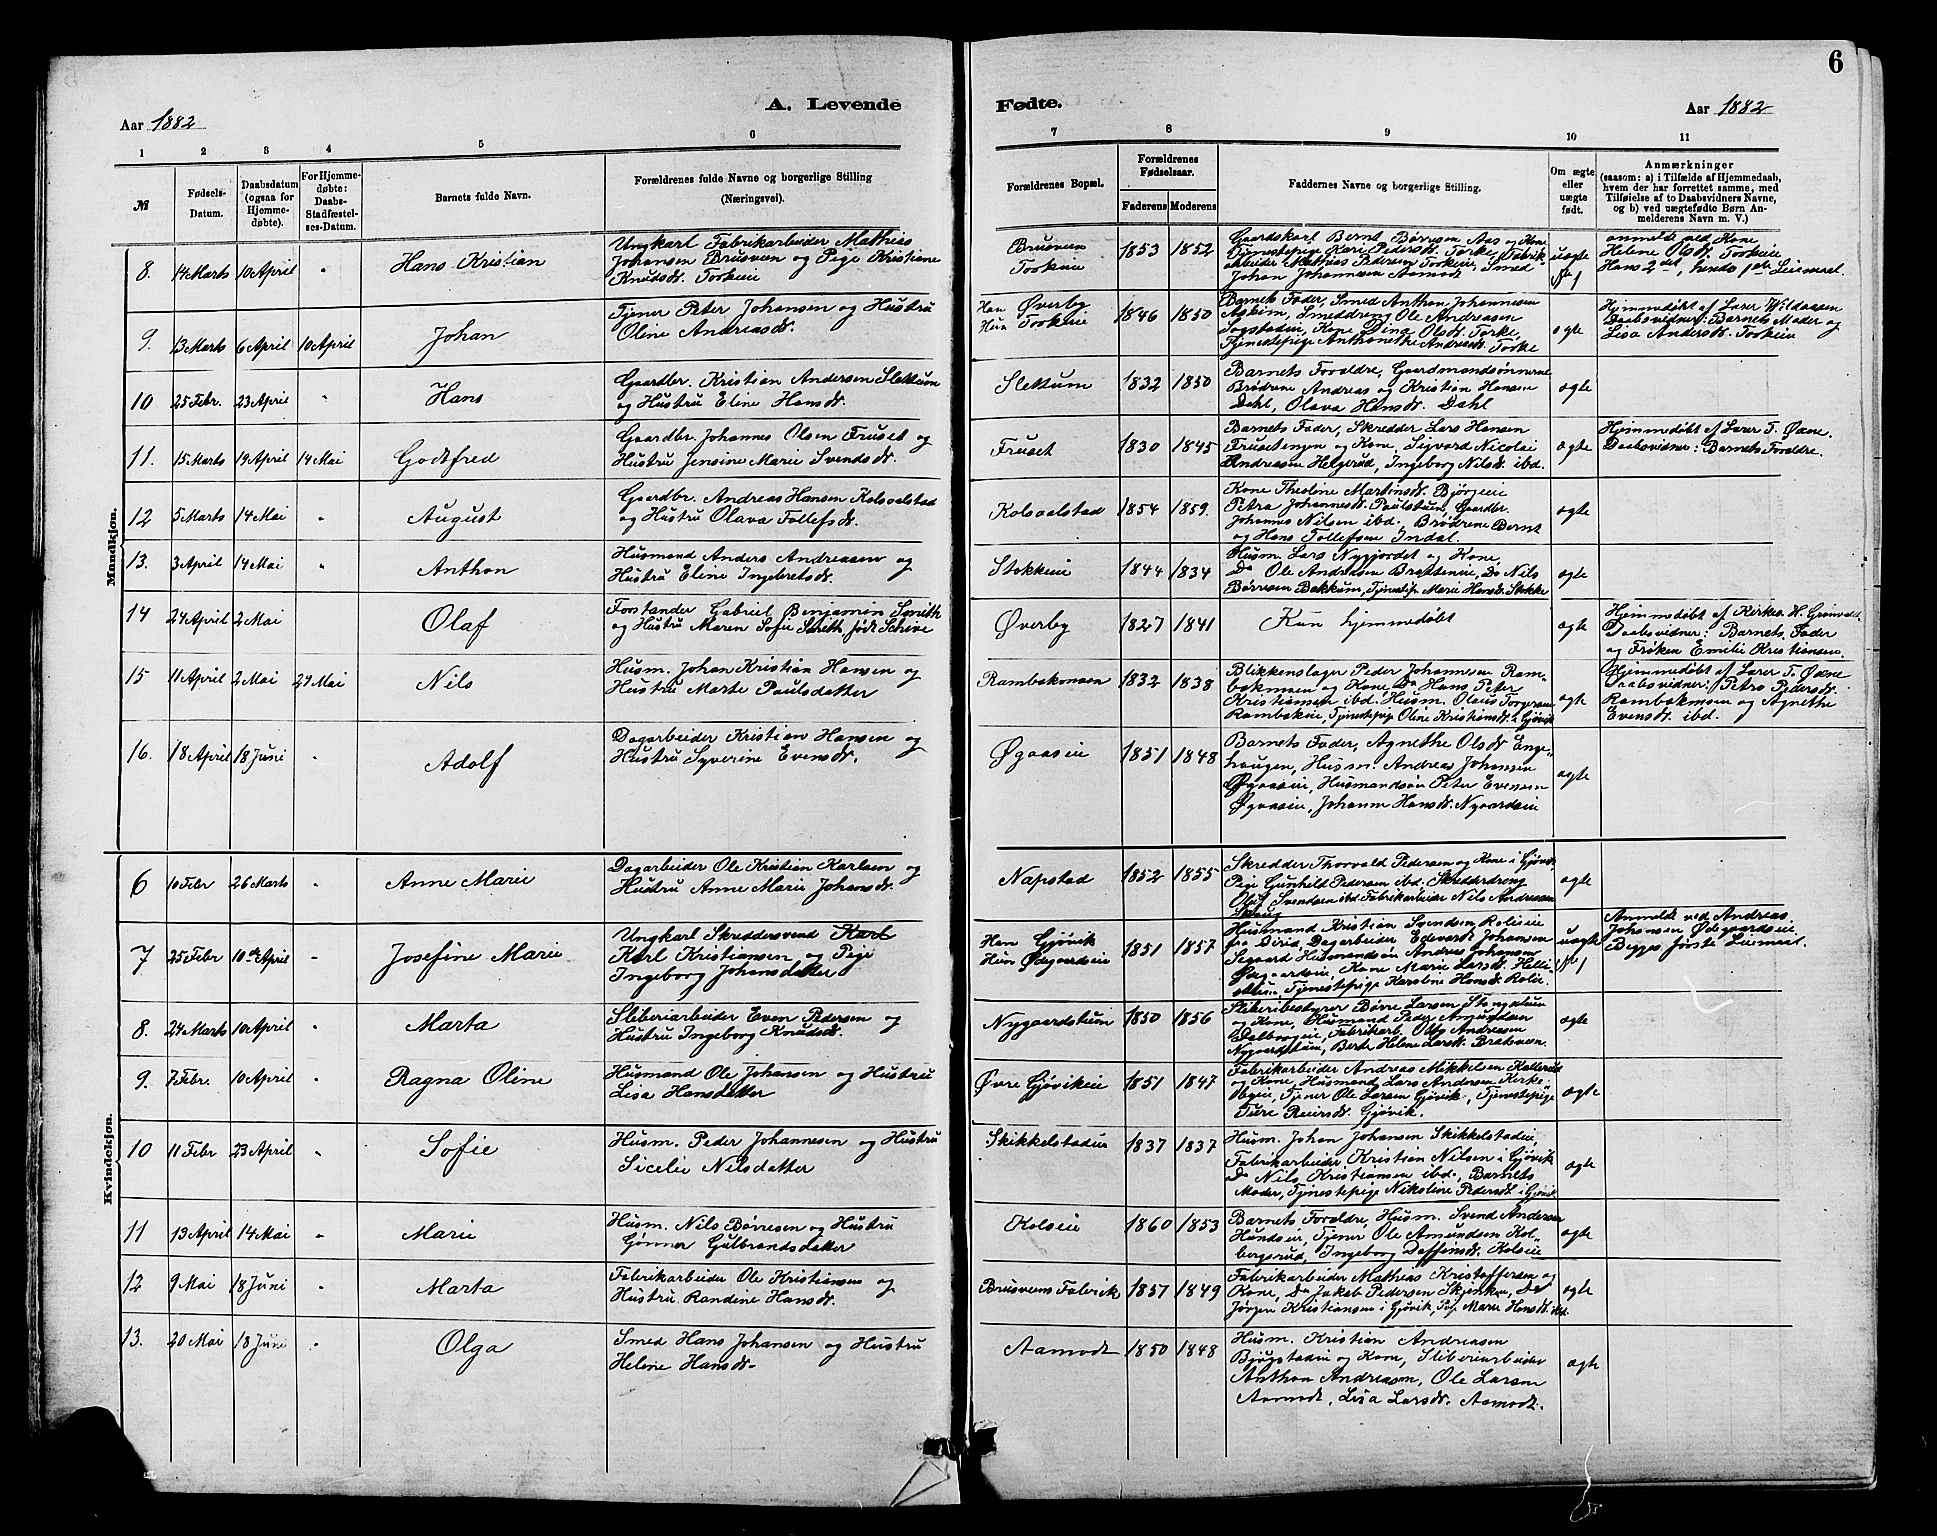 6
A. Levende
Fødte.
Aar 1882
Aar 1882
1 2 3 4 5 6 7 8 9 10 11
№
Fødsels-
Datum.
Daabsdatum
(ogsaa for
Hjemme-
døbte).
For Hjemme-
døbte:
Daabs-
Stadfæstel-
ses-Datum.
Barnets fulde Navn.
Forældrenes fulde Navne og borgerlige Stilling
(Næringsvei).
Forældrenes Bopæl.
Forældrenes
Fødselsaar.
Faderens Moderens
Faddernes Navne og borgerlige Stilling.
Om ægte
eller
uægte
født.
Anmærkninger
(saasom: a) i Tilfælde af Hjemmedaab,
hvem der har forrettet samme, med
Tilføielse af to Daabsvidners Navne,
og b) ved uægtefødte Børn An-
melderens Navn m. V.)
Mandkjøn.
8. 14 Marts 10 April " Hans Kristian
Ungkarl Fabrikarbeider Mathias
Johansen Brusveen og Pige Kristiane
Knudsdt. Torkeie
Brusveen
Torkeie
1853 1852
Gaardskarl Bernt Børresen Aas og Kone
Tjenestepige Kari Pedersdt. Torke, Fabrik-
arbeider Mathias Pedersen Torkeie, Smed
Johan Johannesen Aamodt
uægte
anmeldt ved Kone
Helene Olsdt. Torkeie
Hans 2det, hendes 1ste Leiermaal
9. 13 Marts 6 April 10 April Johan
Tjener Peter Johansen og Hustru
Oline Andreasdt.
Han Øverby
Hun Torkeie
1846 1850
Barnets Fader, Smed Anthon Johannesen
Askim, Smeddreng Ole Andreasen
Sogstadeie, Kone Dina Olsdt. Torke,
Tjenestepige Anthonette Andreasdt. Torke
ægte
Hjemmedøbt af Lærer Wildaasen
Daabsvidner: Barnets Moder og
Lisa Andersdt. Torkeie
10 25 Febr. 23 April " Hans
Gaardbr. Kristian Andersen Slettum
og Hustru Eline Hansdt.
Slettum
1832 1850
Barnets Forældre, Gaardmandsønnerne
Brødrene Andreas og Kristian Hansen
Dahl, Olava Hansdt. Dahl
ægte
11. 15 Marts 19 April 14 Mai Godtfred
Gaardbr. Johannes Olsen Fruset og
Hustru Jensine Marie Svendsdt.
Fruset
1830 1845
Barnets Fader, Skredder Lars Hansen
Frusetengen og Kone, Sigvard Nicolai
Andreasen Helgerud, Ingeborg Nilsdt. ibd.
ægte
Hjemmedøbt af Lærer T. Ødne.
Daabsvidner: Barnets Forældre.
12 5 Marts 14 Mai " August
Gaardbr. Andreas Hansen Kolsvalstad
og Hustru Olava Tollefsdt.
Kolsvalstad
1854 1859.
Kone Theoline Martinsdt. Bjørgeie
Petra Johannesdt. Paulstum, Gaardbr.
Johannes Nilsen ibd., Brødrene Bernt
og Hans Tollefsen Indal.
ægte
13. 3 April 14 Mai " Anthon
Husmand Anders Andreasen og
Hustru Eline Ingebretsdt.
Stokkeie
1844 1834
Husm. Lars Nygjordet og Kone
Do Ole Andreasen Bratteneie, Do Nils
Børresen Bakkum, Tjenestep. Marie Hansdt. Stokke
ægte
14 24 April 2 Mai Olaf
Forstander Gabriel Benjamin Smith
og Hustru Maren Sofie Smith, født Schive
Øverby
1827 1841
Kun hjemmedøbt
ægte
Hjemmedøbt af Kirkes. H. Grønvold
Daabsvidner: Barnets Fader
og Frøken Emilie Kristiansen.
15 11 April 2 Mai 29 Mai Nils
Husm. Johan Kristian Hansen og
Hustru Marte Paulsdatter
Rambekmoen
1832 1838
Blikkenslager Peder Johannesen Ram-
bekmoen og Kone Do Hans Peter
Kristiansen ibd. Husm. Olaus Torgersen
Rambekeie, Tjenestepige Oline Kristiansdt. i Gjøvik
ægte
Hjemmedøbt af Lærer T. Ødne
Daabsvidner: Petra Pedersdt.
Rambekmoen og Agnethe
Evensdt. ibd.
16. 18 April 18 Juni " Adolf
Dagarbeider Kristian Hansen og
Hustru Syverine Evensdt.
Øgaaseie
1851 1848
Barnets Fader, Agnethe Olsdt Enge-
haugen, Husm. Andreas Johansen
Øgaaseie, Husmandsøn Peter Evensen
Øgaaseie, Johanne Hansdt. Nygaardseie
ægte
Kvindekjøn.
6 10 Febr 26 Marts " Anne Marie
Dagarbeider Ole Kristian Karlsen og
Hustru Anne Marie Johansdt.
Napstad
1852 1855
Skredder Thorvald Pedersen og Kone i Gjøvik,
Pige Gunhild Pedersen ibd. Skredderdreng
Olaf Svendsen ibd. Fabrikarbeider Nils Andreasen
ægte
7 25 Febr 10de April " Josefine Marie
Ungkarl Skreddersvend Karl
Karl Kristiansen og Pige
Ingeborg Johansdatter
Han Gjøvik
Hun Ødegaardseie
1851 1857
Husmand Kristian Svendsen Roleie
fra Birid, Dagarbeider Edevardt Johansen
Segaard Husmandsøn Andreas Johansen
Ødegaardseie, Kone Marie Larsdt. Helle-
Tjenestepige Karoline Hansdt. Roleie.
uægte
Anmeldt ved Andreas
Johansen Ødegaardseie.
Begges første Leiermaal.
8 24 Marts 10 April " Marta
Sliberiarbeider Even Pedersen og
Hustru Ingeborg Knudsdt.
Nygaardstuen
1850 1856
Sliberibestyrer Børre Larsen Stengstuen
og Kone, Husmand Peder Amundsen
Dalborgeie, Fabrikarb. Ole Andreasen
Nygaardstuen, Berte Helene Larsdt. Bratveen.
ægte
9. 7 Febr. 10 April " Ragna Oline
Husmand Ole Johansen og Hustru
Lisa Hansdatter
Øvre Gjøvikeie
1851 1847
Fabrikarbeider Andreas Mikkelsen Kallerud
og Kone, Husmand Lars Andersen Kirke-
byeie, Tjener Ole Larsen Gjøvik, Tjenestepige
Ture Reiersdt. Gjøvik.
ægte
10 11 Febr 23 April " Sofie
Husm. Peder Johannesen og Hustru
Sicelie Nilsdatter
Skikkelstadeie
1837 1837
Husm. Johan Johansen Skikkelstadeie,
Fabrikarbeider Kristian Nilsen i Gjøvik
Do Nils Kristiansen ibd., Barnets
Moder, Tjenestepige Nikoline Pedersdt i Gjøvik
ægte
11 13 April 14 Mai " Marie
Husm. Nils Børresen og Hustru
Gønner Gulbrandsdatter
Kolseie
1860 1853
Barnets Forældre, Husm. Svend Andersen
Hundseie, Tjener Ole Amundsen Kol-
bergsrud, Ingeborg Daffinsdt. Kolseie
ægte
12 9 Mai 18 Juni " Marta
Fabrikarbeider Ole Kristiansen og
Hustru Randine Hansdt.
Brusveens Fabrik
1857 1849
Fabrikarbeider Mathias Kristoffersen og
Kone, Do Jakob Pedersen Skjenken, Do
Jørgen Kristiansen i Gjøvik, Pige Marie Hansdt. ibd.
ægte
13. 20 Mai 18 Juni " Olga
Smed Hans Johansen og Hustru
Helene Hansdt.
Aamodt
1850 1848
Husm. Kristian Andreasen
Bjugstadeie og Kone, Sliberiarbeider
Anthon Andreasen, Ole Larsen
Aamodt, Lisa Larsdt. Aamodt.
ægte